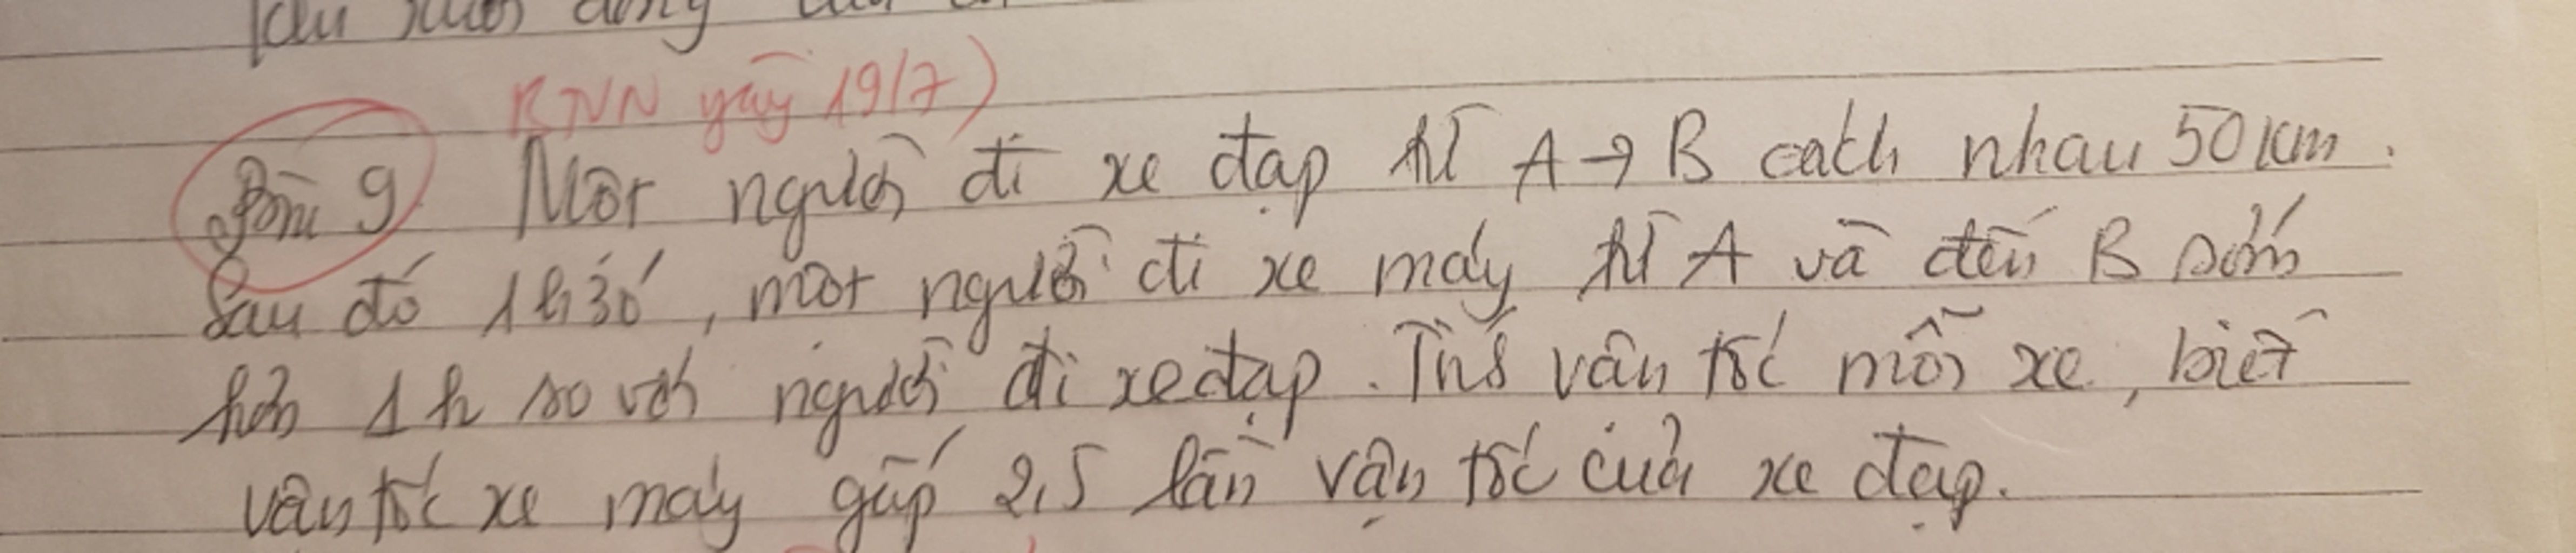 BTVN ngày 19/7)
Bài 9. Một người đi xe đạp từ A → B cách nhau 50 km.
Sau đó 1h30', một người đi xe máy từ A và đến B sớm
hơn 1h so với người đi xe đạp. Tính vận tốc mỗi xe, biết
vận tốc xe máy gấp 2,5 lần vận tốc của xe đạp.